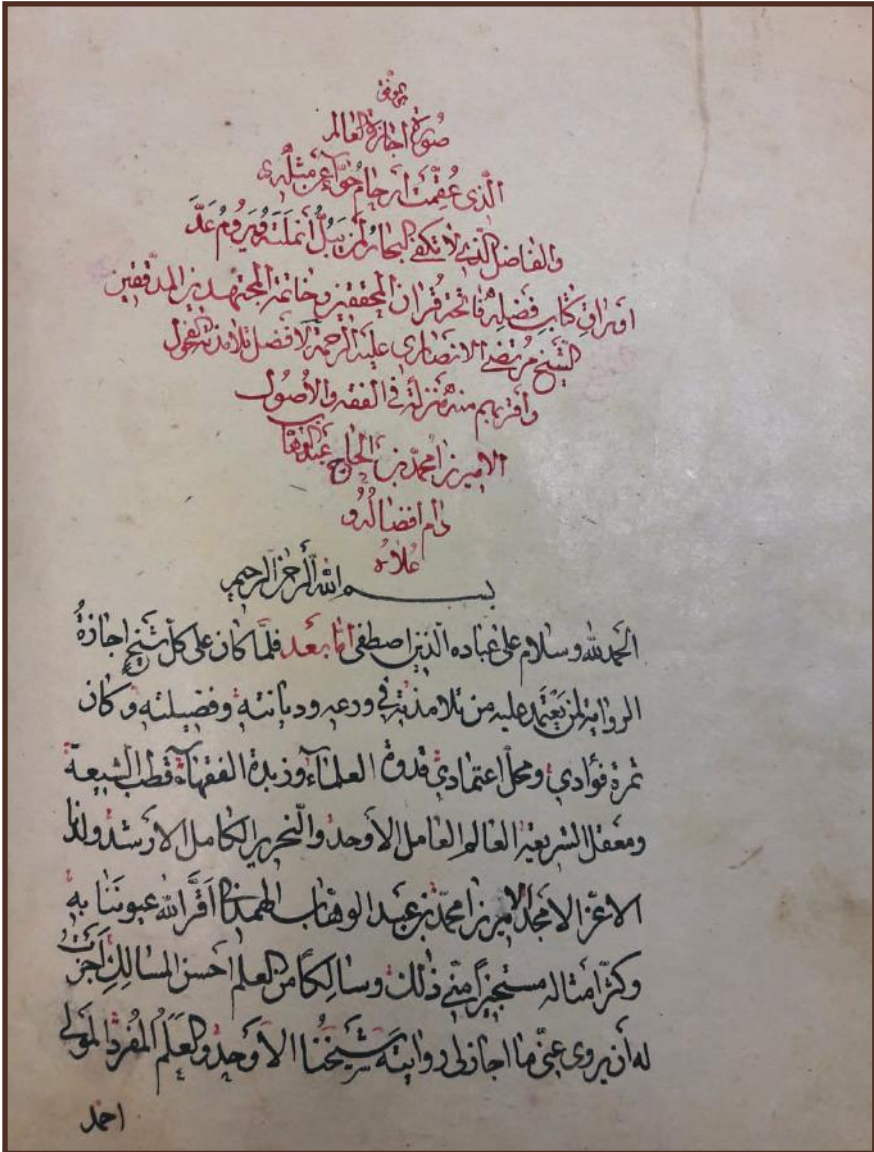 صورة اجازة العالم
الذي عقمت ارحام حوّآء عن مثله
والفاضل الذي لا تكفي البحار لمن يبلّ أنملته ويروم عدّ
اوراق كتاب فضله فاتحة قرآن المحققين وخاتمة المجتهدين المدققين
الشيخ مرتضى الانصاري عليه الرحمة لافضل تلامذته الفحول
واقربهم منه منزلة في الفقه والأصول
الاميرزا محمد بن الحاج عبد الوهاب
دام افضاله و
علاه
بسم الله الرحمن الرحيم
الحمد لله وسلام على عباده الذين اصطفى امّا بعد فلمّا كان على كل شيخ اجازة
الرواية لمن يعتمد عليه من تلامذته في ورعه وديانته وفضيلته وكان
ثمرة فؤادي ومحلّ اعتمادي قدوة العلمآء وزبدة الفقهآء قطب الشيعة
ومعقل الشريعة العالم العامل الأوحد والنحرير الكامل الارشد ولدنا
الاعزّ الامجد الاميرزا محمّد بن عبد الوهّاب الهمداني اقرّ الله عيوننا به
وكثّر امثاله مستجيزاً منّي ذلك وسالكاً من العلم احسن المسالك أجزتُ
له أن يروي عنّي ما اجاز لي روايته شيخنا الأوحد والعلم المفرد المولى
احمد